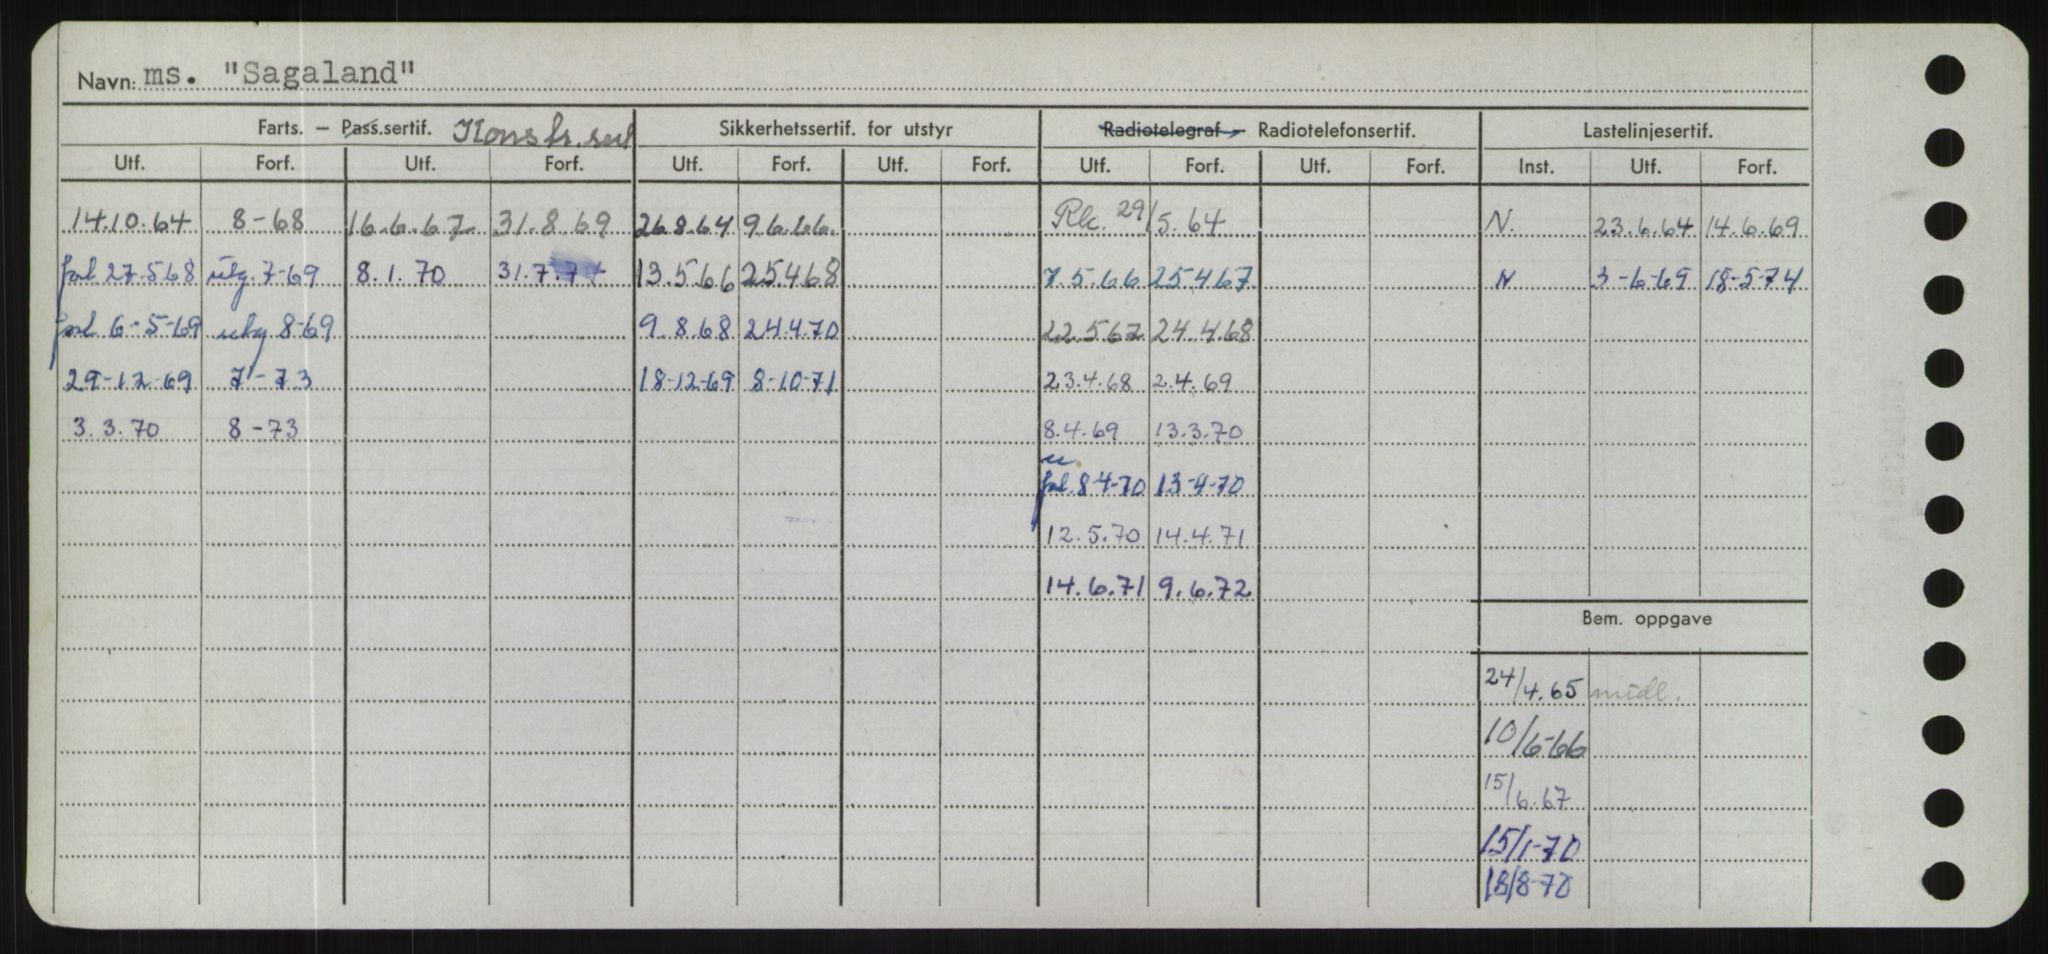 Navn: ms. "Sagaland"
Farts. – Pass.sertif. Konstr. sert Sikkerhetssertif. for utstyr Radiotelegraf – Radiotelefonsertif. Lastelinjesertif.
Utf. Forf. Utf. Forf. Utf. Forf. Utf. Forf. Utf. Forf. Utf. Forf. Inst. Utf. Forf.
14.10.64 8-68 16.6.67 31.8.69 26.8.64 9.6.66. Rk. 29/5.64 N. 23.6.64 14.6.69
forl 27-568 utg. 7-69 8.1.70 31.7.7 13.5.66 25.468 7.5.66 25.467 N 3-6-69 18-5-74
forl 6-5-69 utg 8-69 9.8.68 24.4.70 22.567 24.4.68
29-12-69 7-73 18-12-69 8-10-71 23.4.68 2.4.69
3.3.70 8-73 8.4.69 13.3.70
u.
forl. 8-4-70 13-4-70
12.5.70 14.4.71
14.6.71 9.6.72
Bem. oppgave
24/4.65 midl.
10/6-66
15/6.67
15/1-70
18/8-70